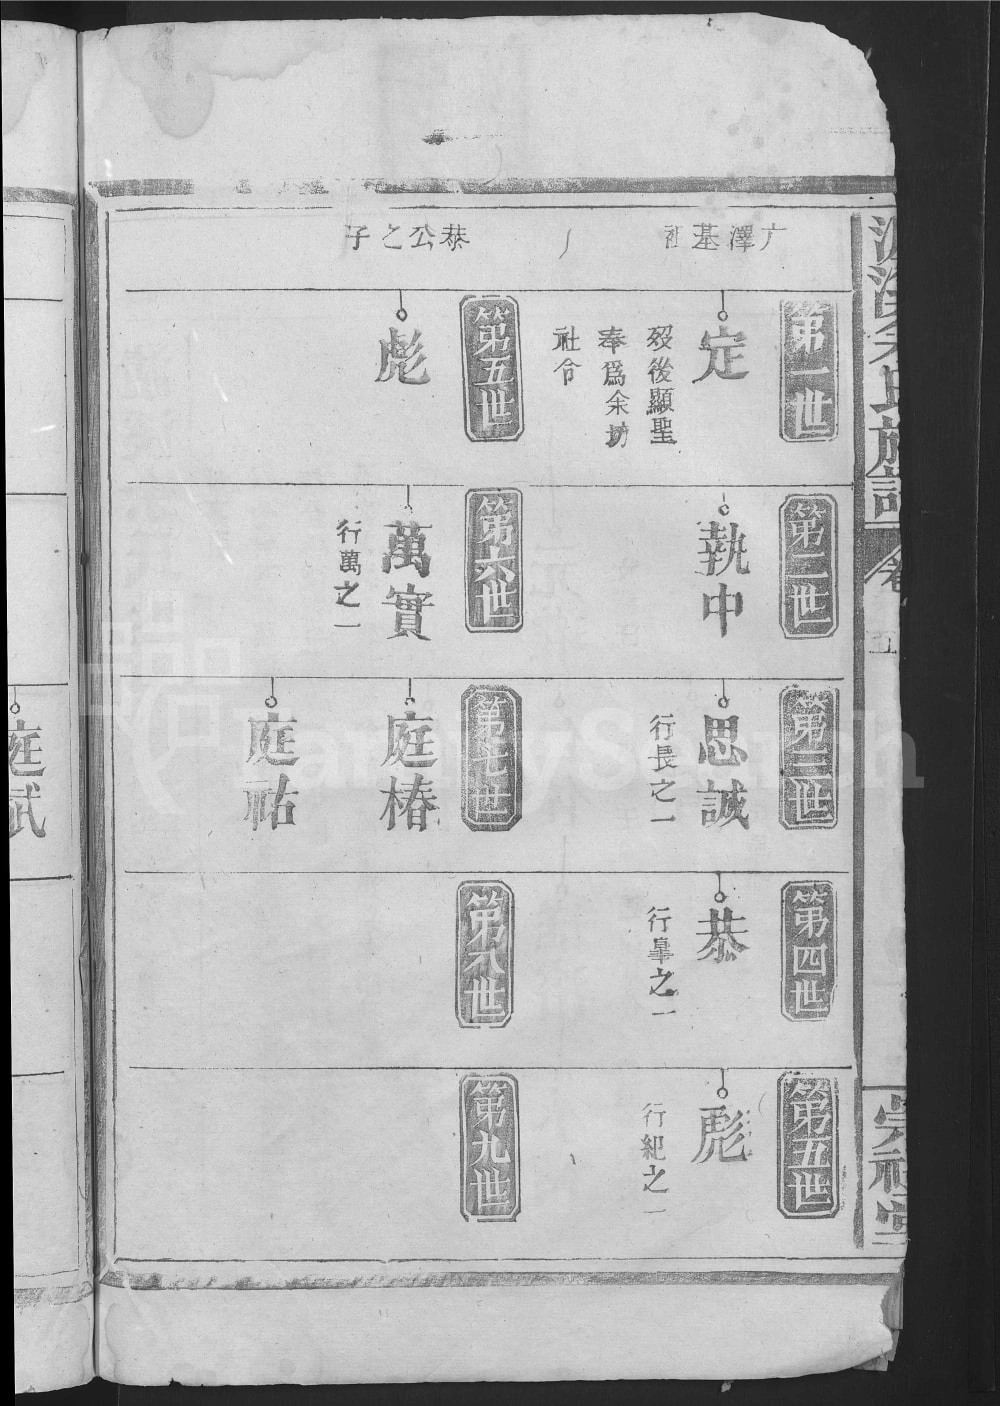 氏族譜
卷
崇禮堂
广澤基祖
第一世
定
歿後顯聖
奉爲余坊
社令
第二世
執中
第三世
思誠
行長之一
第四世
恭
行臯之一
第五世
彪
行紀之一
恭公之子
第五世
彪
第六世
萬實
行萬之一
第七世
庭椿
庭祜
第八世
第九世
庭武
FamilySearch